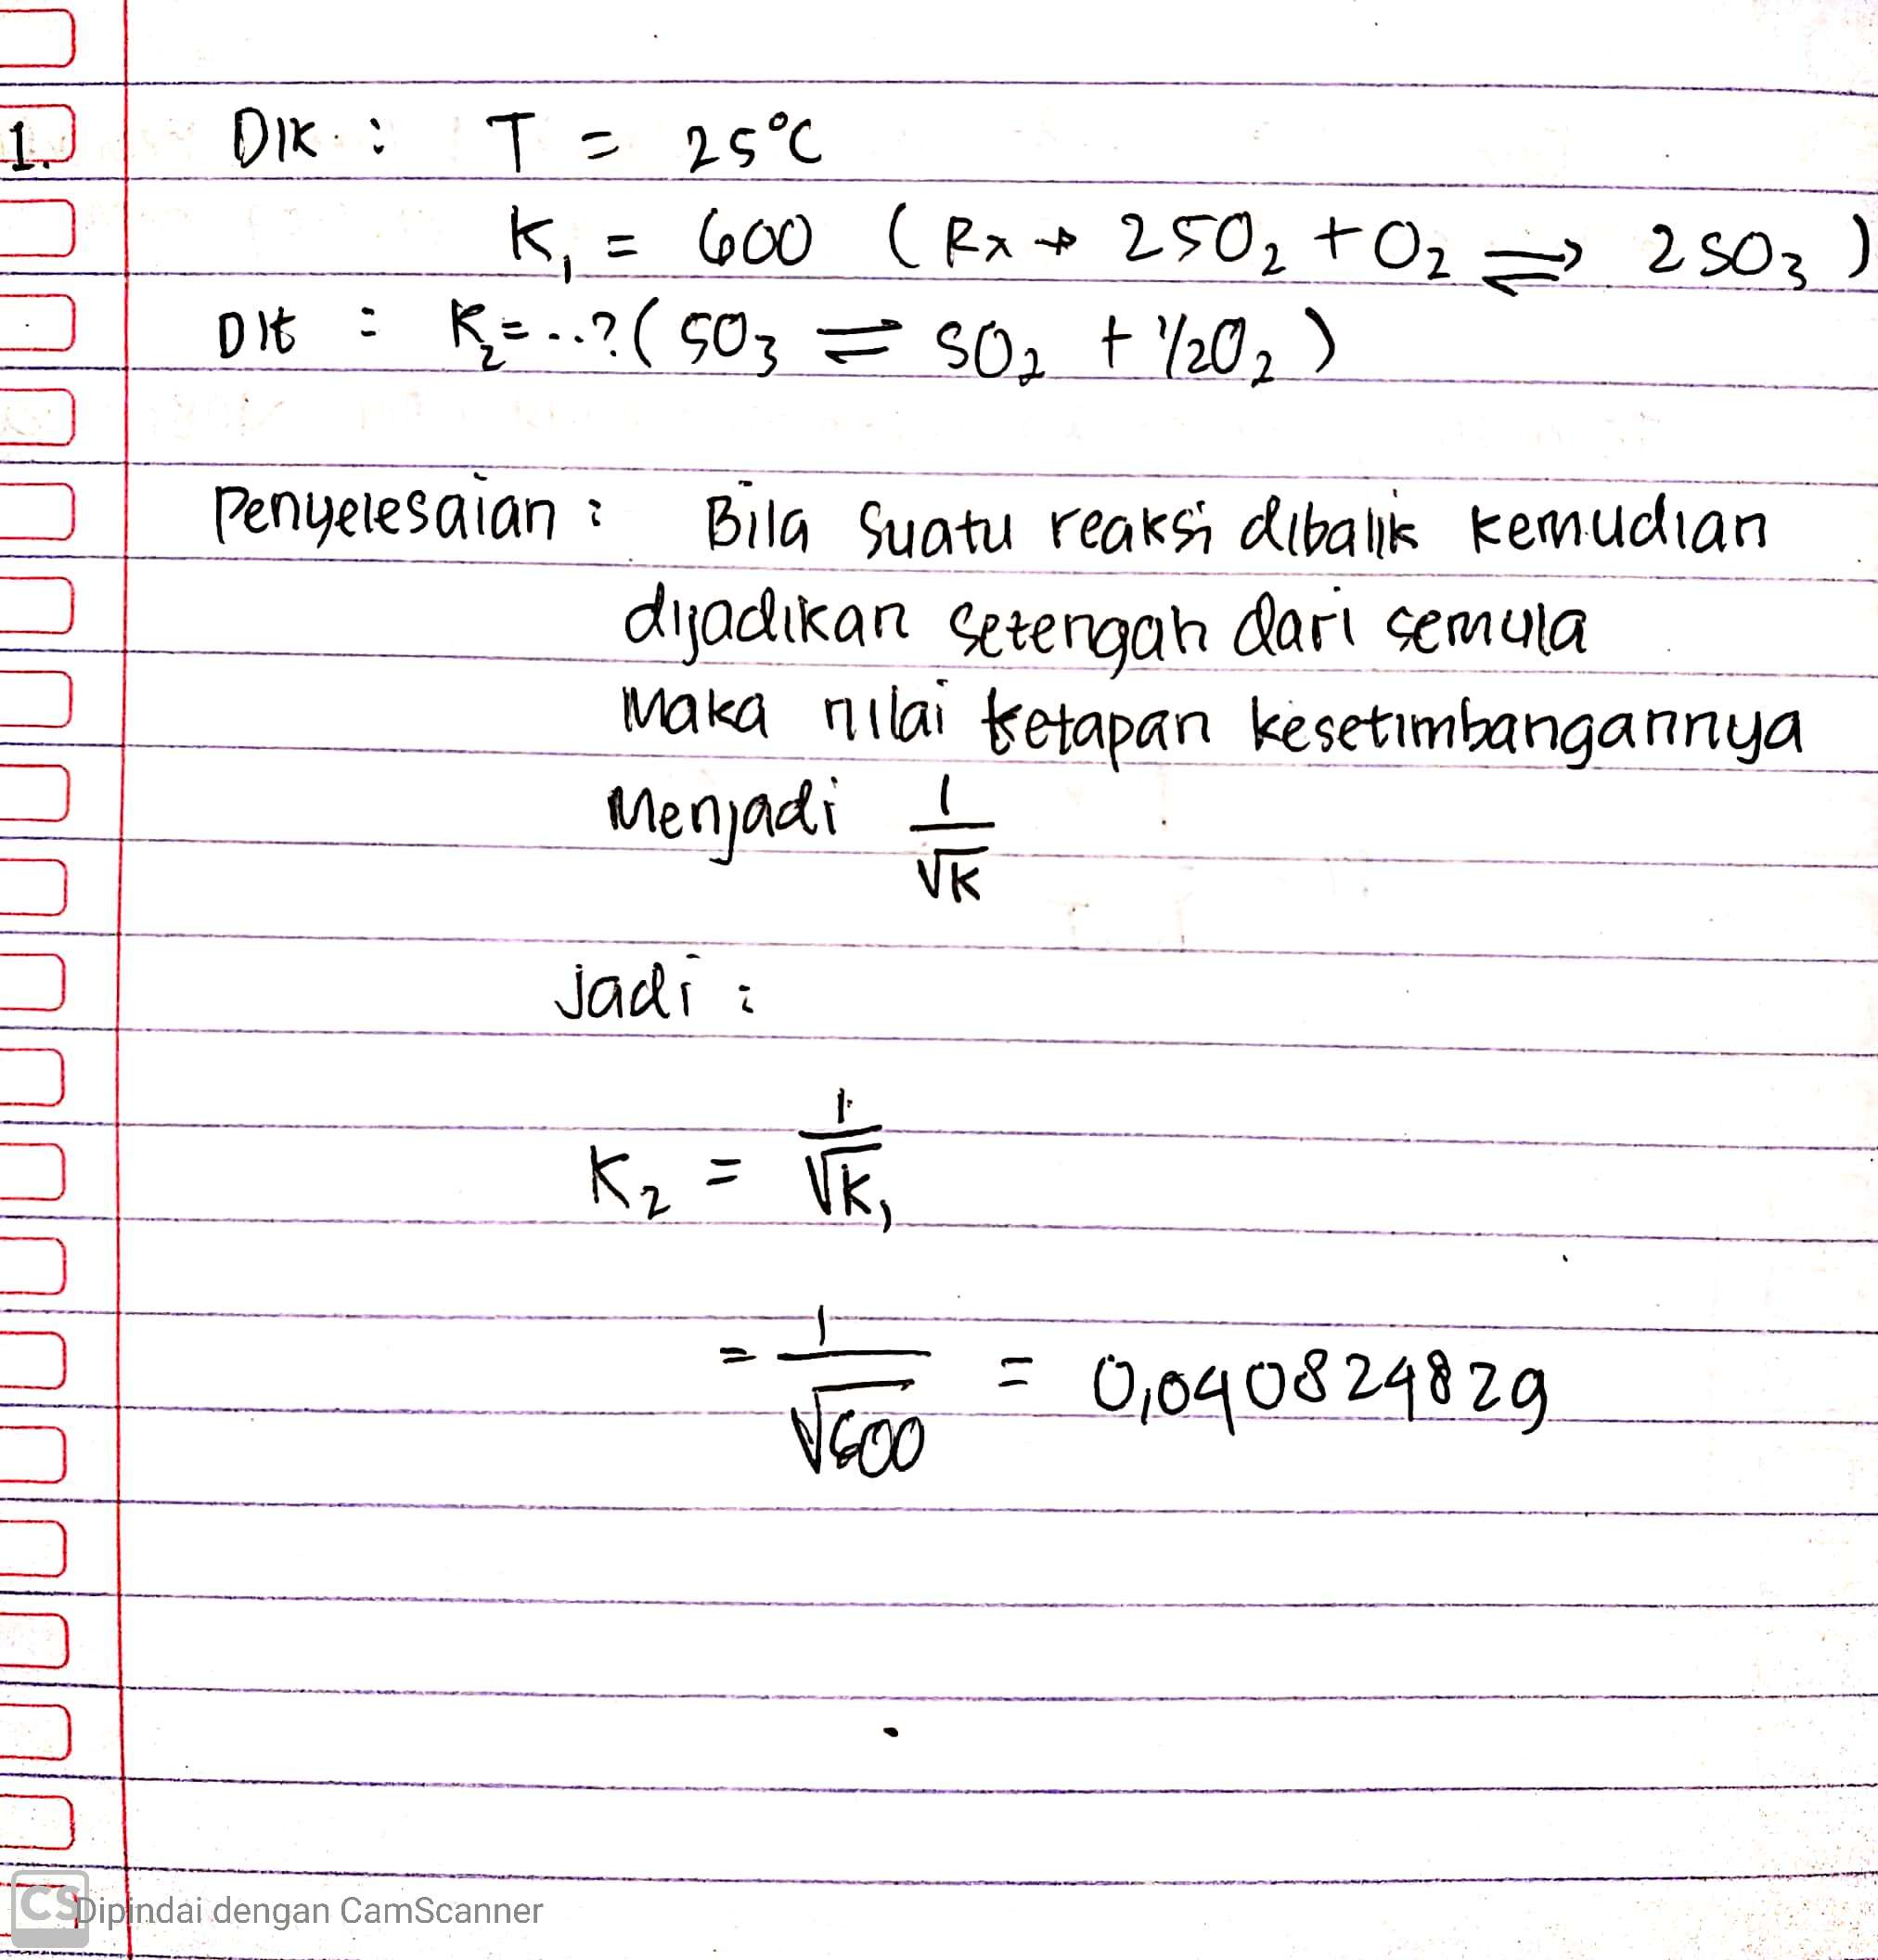 1. Dik : T = 25°C
K₁ = 600 (Rx → 2SO₂ + O₂ ⇌ 2SO₃)
Dit : K₂ = ..? (SO₃ ⇌ SO₂ + 1/2O₂)
Penyelesaian : Bila suatu reaksi dibalik kemudian
dijadikan setengah dari semula
Maka nilai ketapan kesetimbangannya
Menjadi 1/√K
jadi :
K₂ = 1/√K₁
= 1/√600 = 0,0408248829
CS Dipindai dengan CamScanner